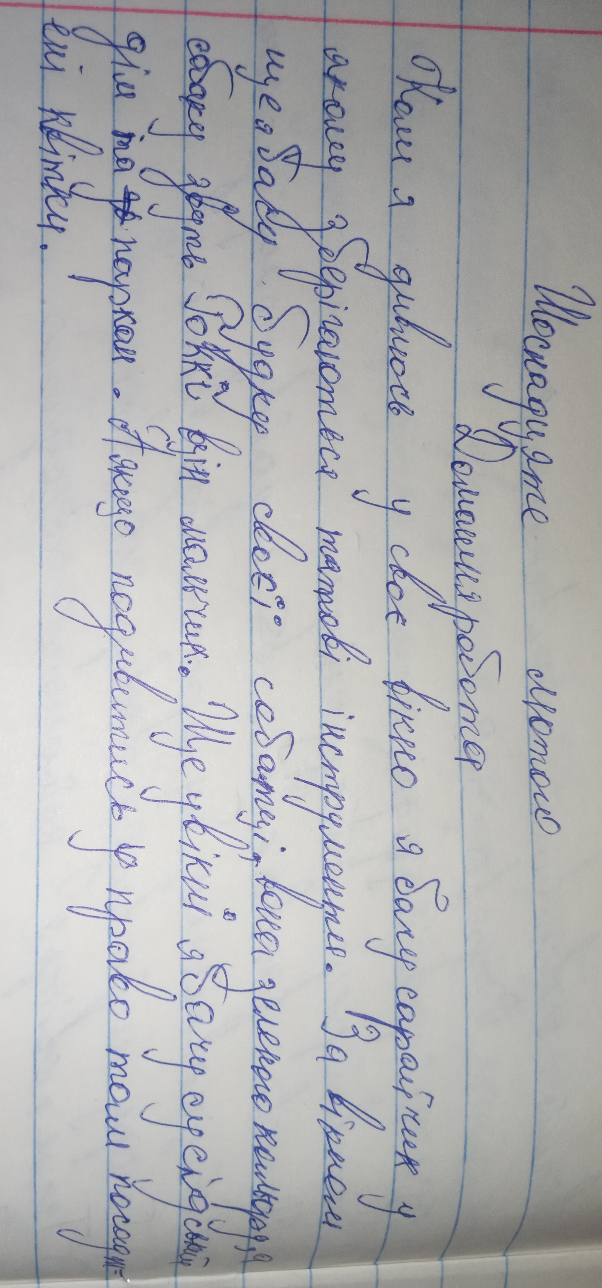 Шоснадцяте лютого
Домашня робота
Коли я дивлюсь у своє вікно я бачу сарайчик у
якому зберігаються татові інструменти. За вікном
ще я бачу будку своєї собачці, вона зеленого кольору, а
собаку звуть Роккі він мальчик. Ще у вікні я бачу сусідський
дім та паркан. А якщо подивитись в право там посадж-
ені квітки.